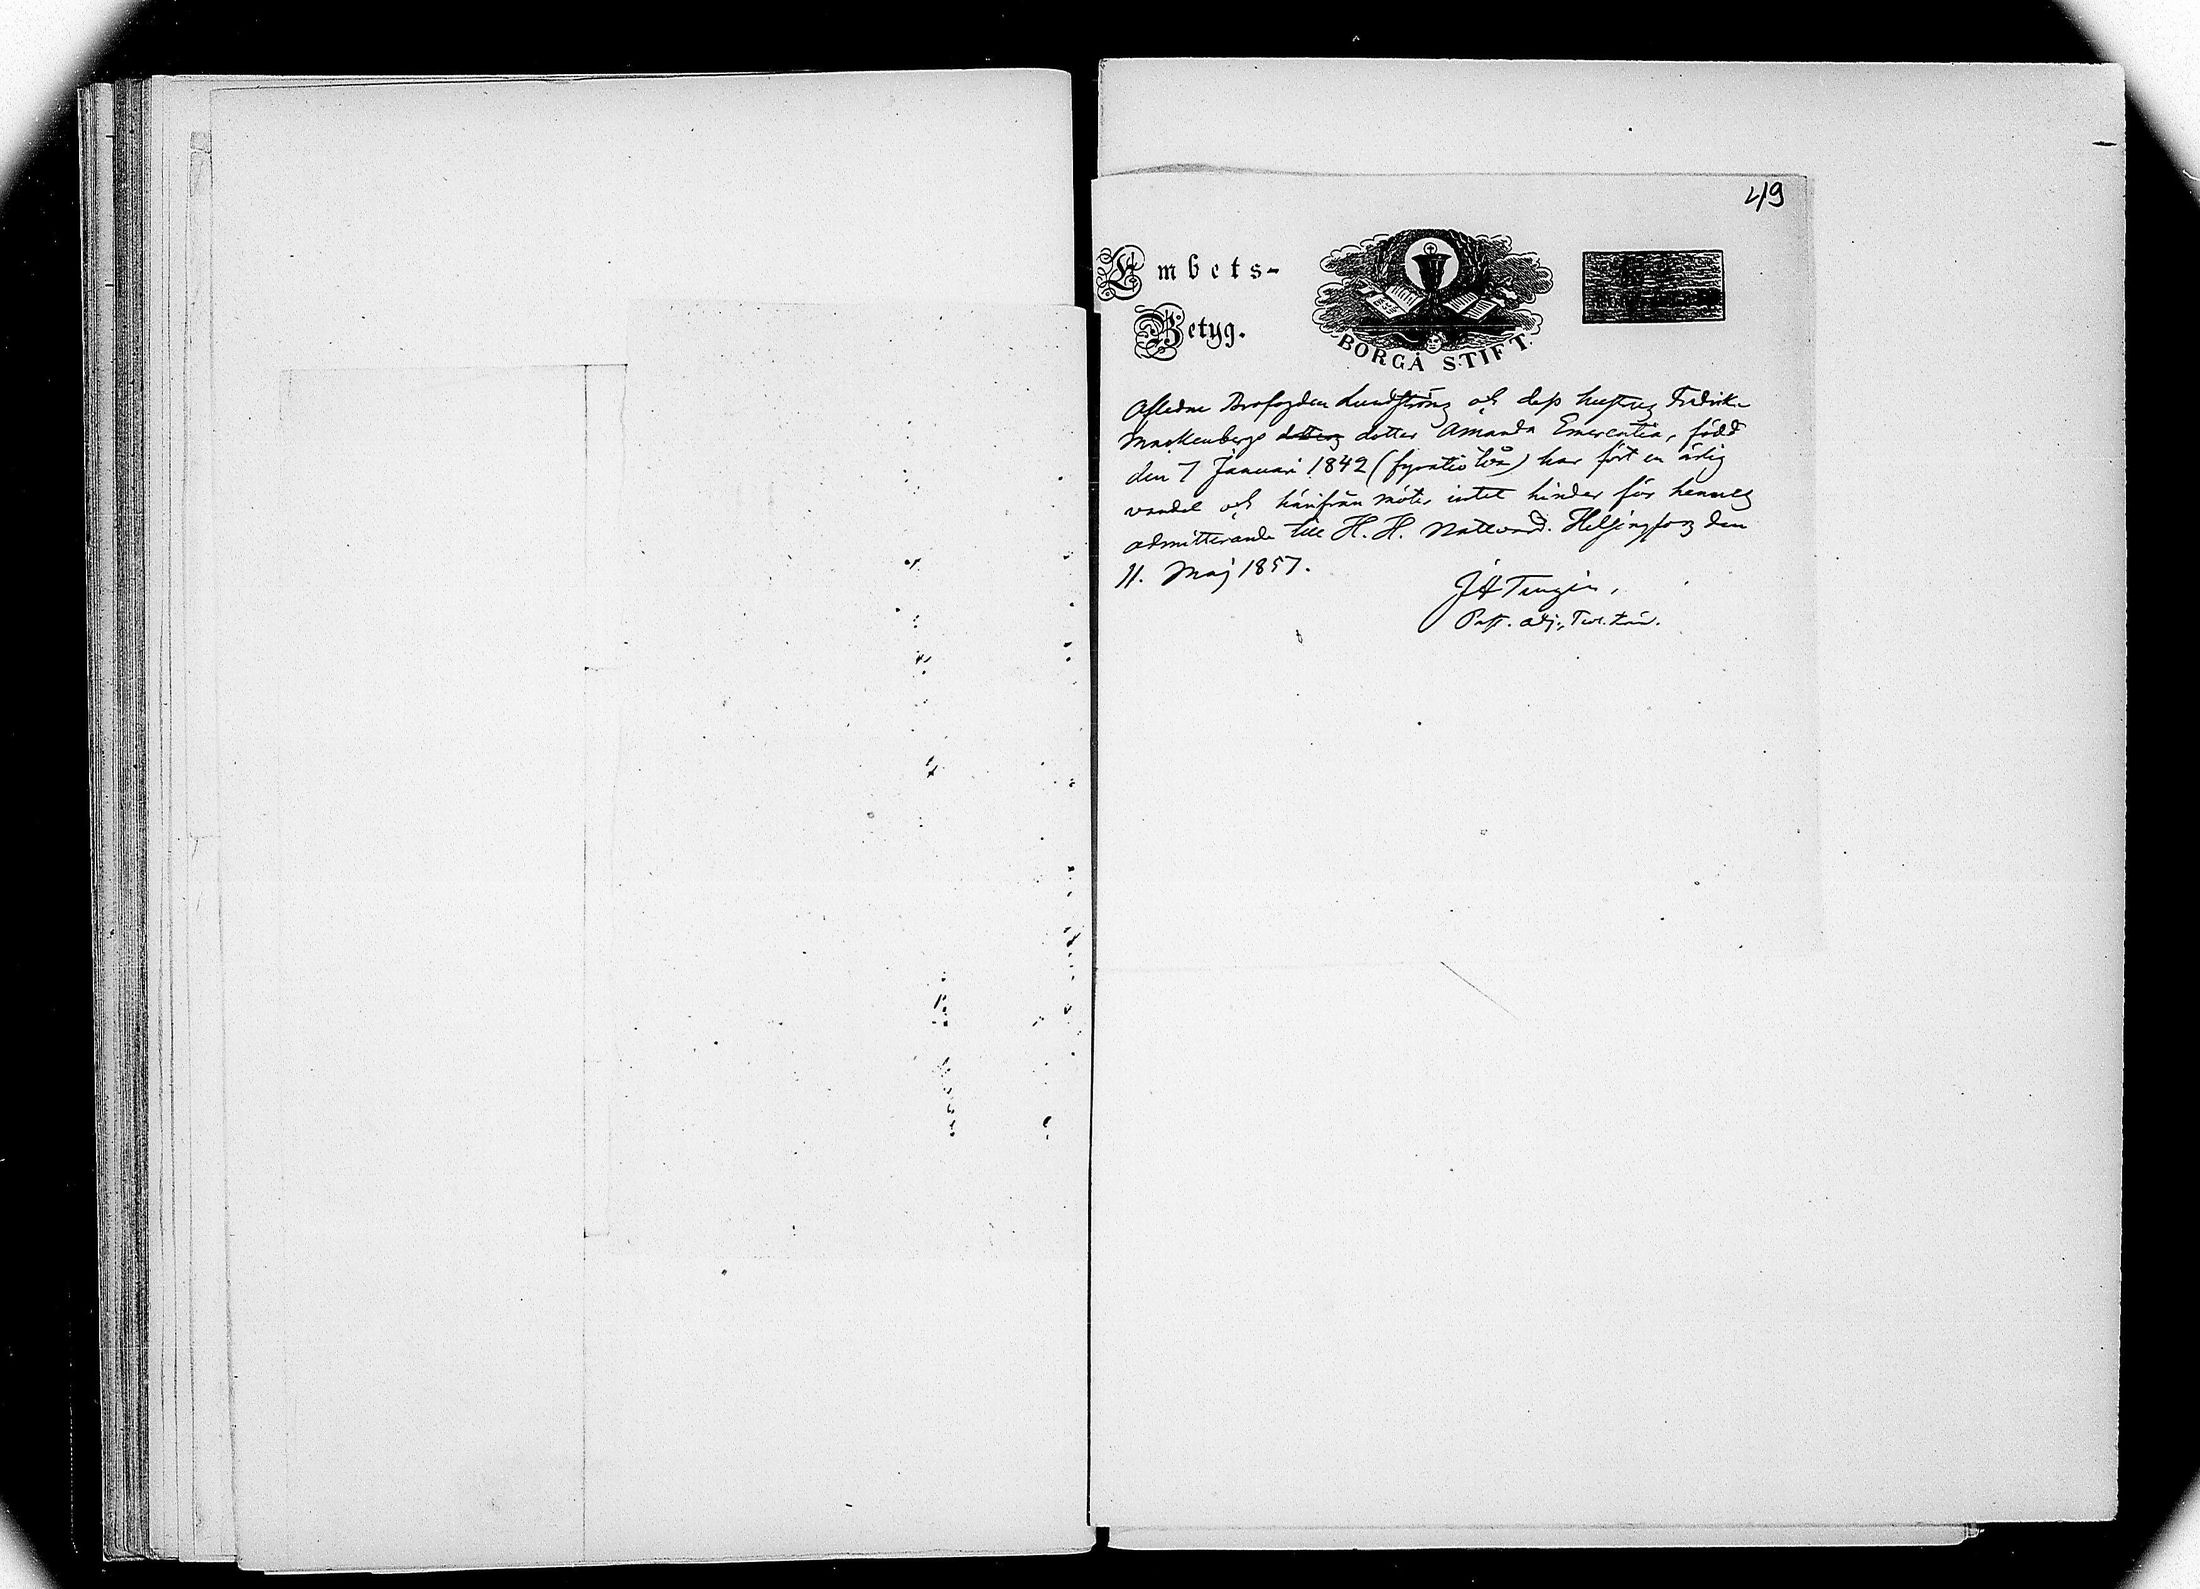 49
Embets-
Betyg.
BORGÅ STIFT.
Aflidne Brofogden Lundströms och dess hustrus Fredrika
Mackenbergs dotter Amanda Emerentia, född
den 7 Januari 1842 (fyratio två) har fört en ärlig
vandel och härifrån möter intet hinder för hennes
admitterande till H. H. Nattvard. Helsingfors den
11. Maj 1857.